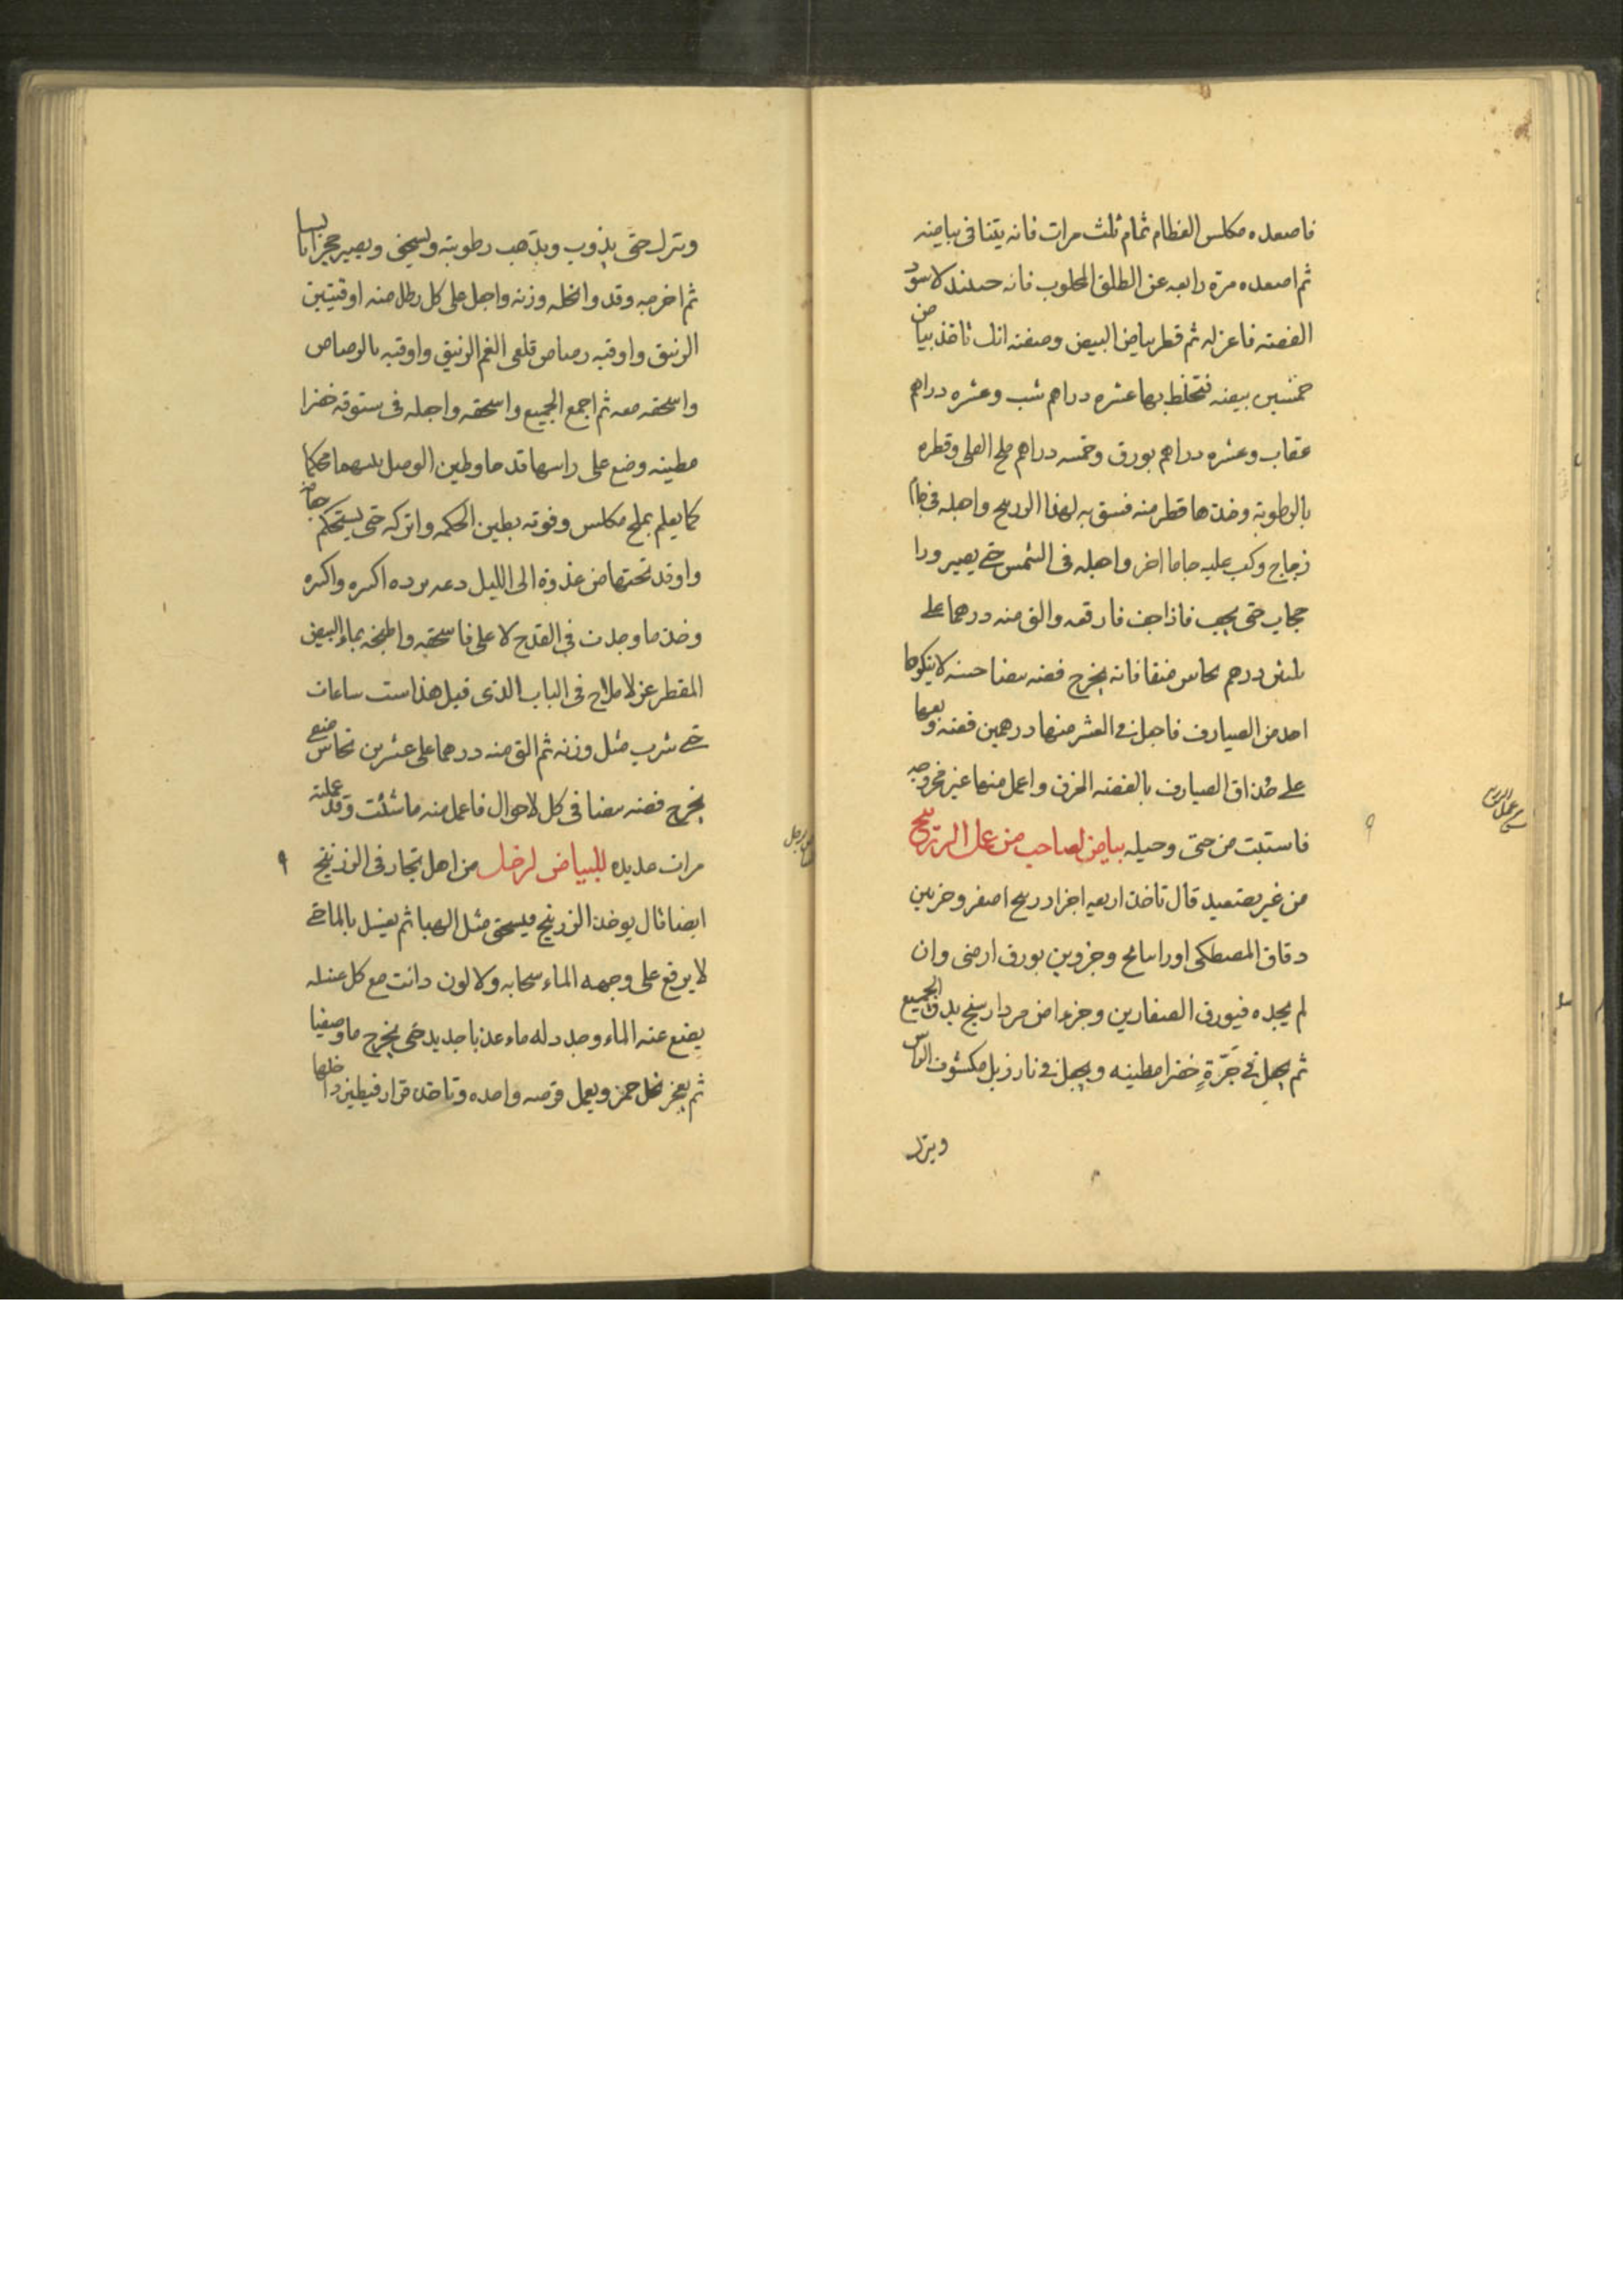 فاصعده مكلس العظام تمام ثلث مرات فانه يتناقى بياضه
ثم اصعده مرة رابعه عن الطلق المحلوب فانه حينئذ لاسود
الفضه فاعزله ثم قطر بياض البيض وصفته انك تاخذ بياض
خمسين بيضه فتخلط بها عشره دراهم شب وعشره دراهم
عقاب وعشره دراهم بورق وخمسه دراهم ملح القلى وقطره
بالرطوبة وخذ ما قطر منه فسق به لهذا الزرنيخ واجعله فى جام
زجاج وكب عليه جاما اخر واجعله فى الشمس حتى يصير ورا
حجاب حتى يجب فاذا جف فارفعه والق منه درهما على
ثلثين درهم نحاس منقا فانه يخرج فضه بيضا حسنه لا ينكرها
احد من الصيارف فاجعل فى العشر منها درهمين فضه وبعها
على حذاق الصيارف بالفضه الحرف واعمل منها غير مخروجه
فاستبت من حتى وحيله بياض لصاحب من عمل الزرنيخ
من غير تصعيد قال تاخذ اربعه اجزا زرنيخ اصفر وجزين
دقاق المصطكى او راسانج وجزوين بورق ارضى وان
لم يجده فبورق الصفارين وجزءا من مرداسنج يدق الجميع
ثم يجعل فى جَرّةٍ خضرا مطينه ويجعل فى نار زبل مكشوف الراس
ويترك
ويترك حتى يذوب ويذهب رطوبته ويسخن ويصير حجرا يابسا
ثم اخرجه وقد وانخله وزنه واجعل على كل رطل منه اوقيتين
الزيبق واوقيه رصاص قلعى الغم الزيبق واوقيه بالرصاص
واسحقه معه ثم اجمع الجميع واسحقه واجعله فى ستوقه خضرا
مطينه وضع على راسها قدحا وطين الوصل بينهما محكما
كما يعلم بملح مكلس وفوقه بطين الحكمه واتركه حتى يستحكم جفافه
واوقد تحتها من غدوة الى الليل دعه برده اكسره واكسره
وخذ ما وجدت فى القدح لاعلى فاسحقه واطبخه بماء البيض
المقطر عن لاملاح فى الباب الذى قبل هذا ست ساعات
حتى شرب مثل وزنه ثم الق منه درهما على عشرين نحاس منقى
يخرج فضه بيضا فى كل لاحوال فاعمل منه ما شئت وقد عملته
مرات عديده للبياض لرجل من اهل بخار فى الزرنيخ
ايضا قال يوخذ الزرنيخ فيسحق مثل الهبا ثم يغسل بالما حتى
لا يرفع على وجهه الماء سحابه ولا لون وانت مع كل غسله
يضع عنه الماء وجدد له ماء عذبا جديد حتى يخرج ما وصفيا
ثم يعجن بخل خمر ويعمل قرصه واحده وتاخذ قرار فيطين داخلها